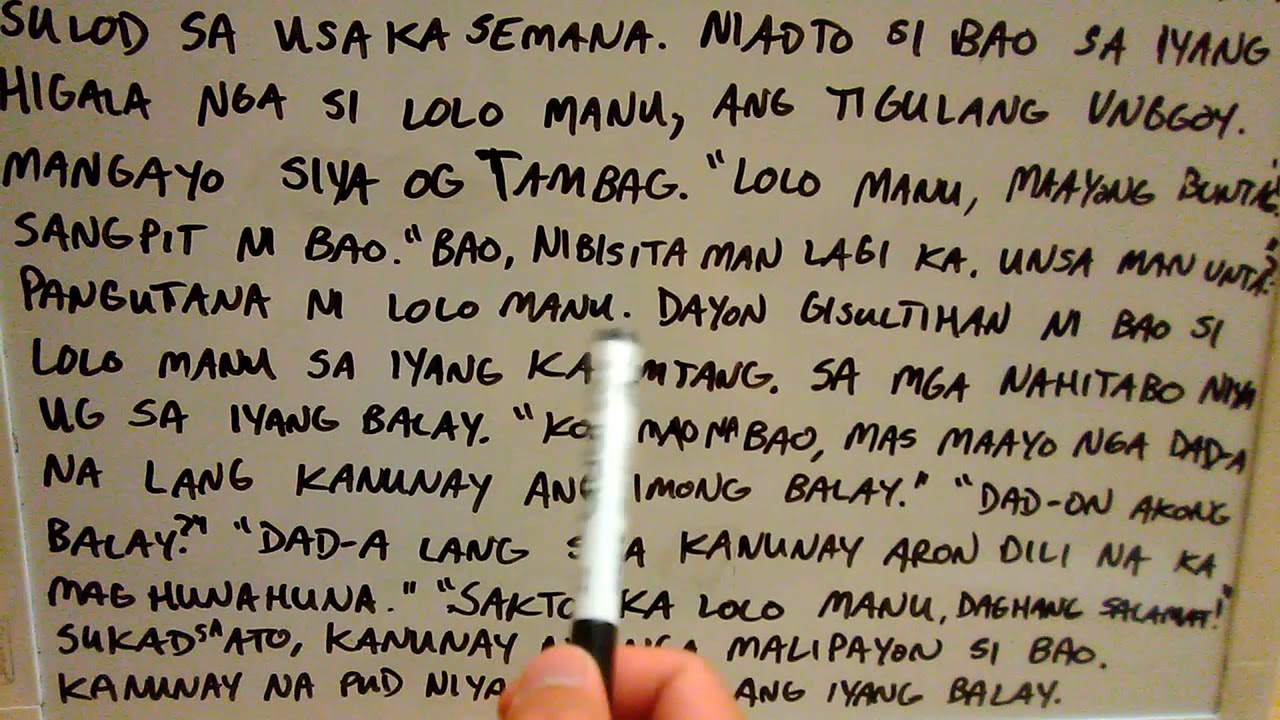 SULOD SA USA KA SEMANA. NIADTO SI BAO SA IYANG
HIGALA NGA SI LOLO MANU, ANG TIGULANG UNGGOY.
MANGAYO SIYA OG TAMBAG. "LOLO MANU, MAAYONG BUNTAG."
SANGPIT NI BAO. "BAO, NIBISITA MAN LAGI KA. UNSA MAN UNTA?"
PANGUTANA NI LOLO MANU. DAYON GISULTIHAN NI BAO SI
LOLO MANU SA IYANG MTANG. SA MGA NAHITABO NIYA
UG SA IYANG BALAY. " MAO NA BAO, MAS MAAYO NGA DAD-A
NA LANG KANUNAY ANG IMONG BALAY." "DAD-ON AKONG
BALAY?" "DAD-A LANG KANUNAY ARON DILI NA KA
MAG HUNAHUNA." "SAKTO KA LOLO MANU, DAGHANG SALAMAT!"
SUKAD SA ATO, KANUNAY NGA MALIPAYON SI BAO.
KANUNAY NA PUD NIYA ANG IYANG BALAY.